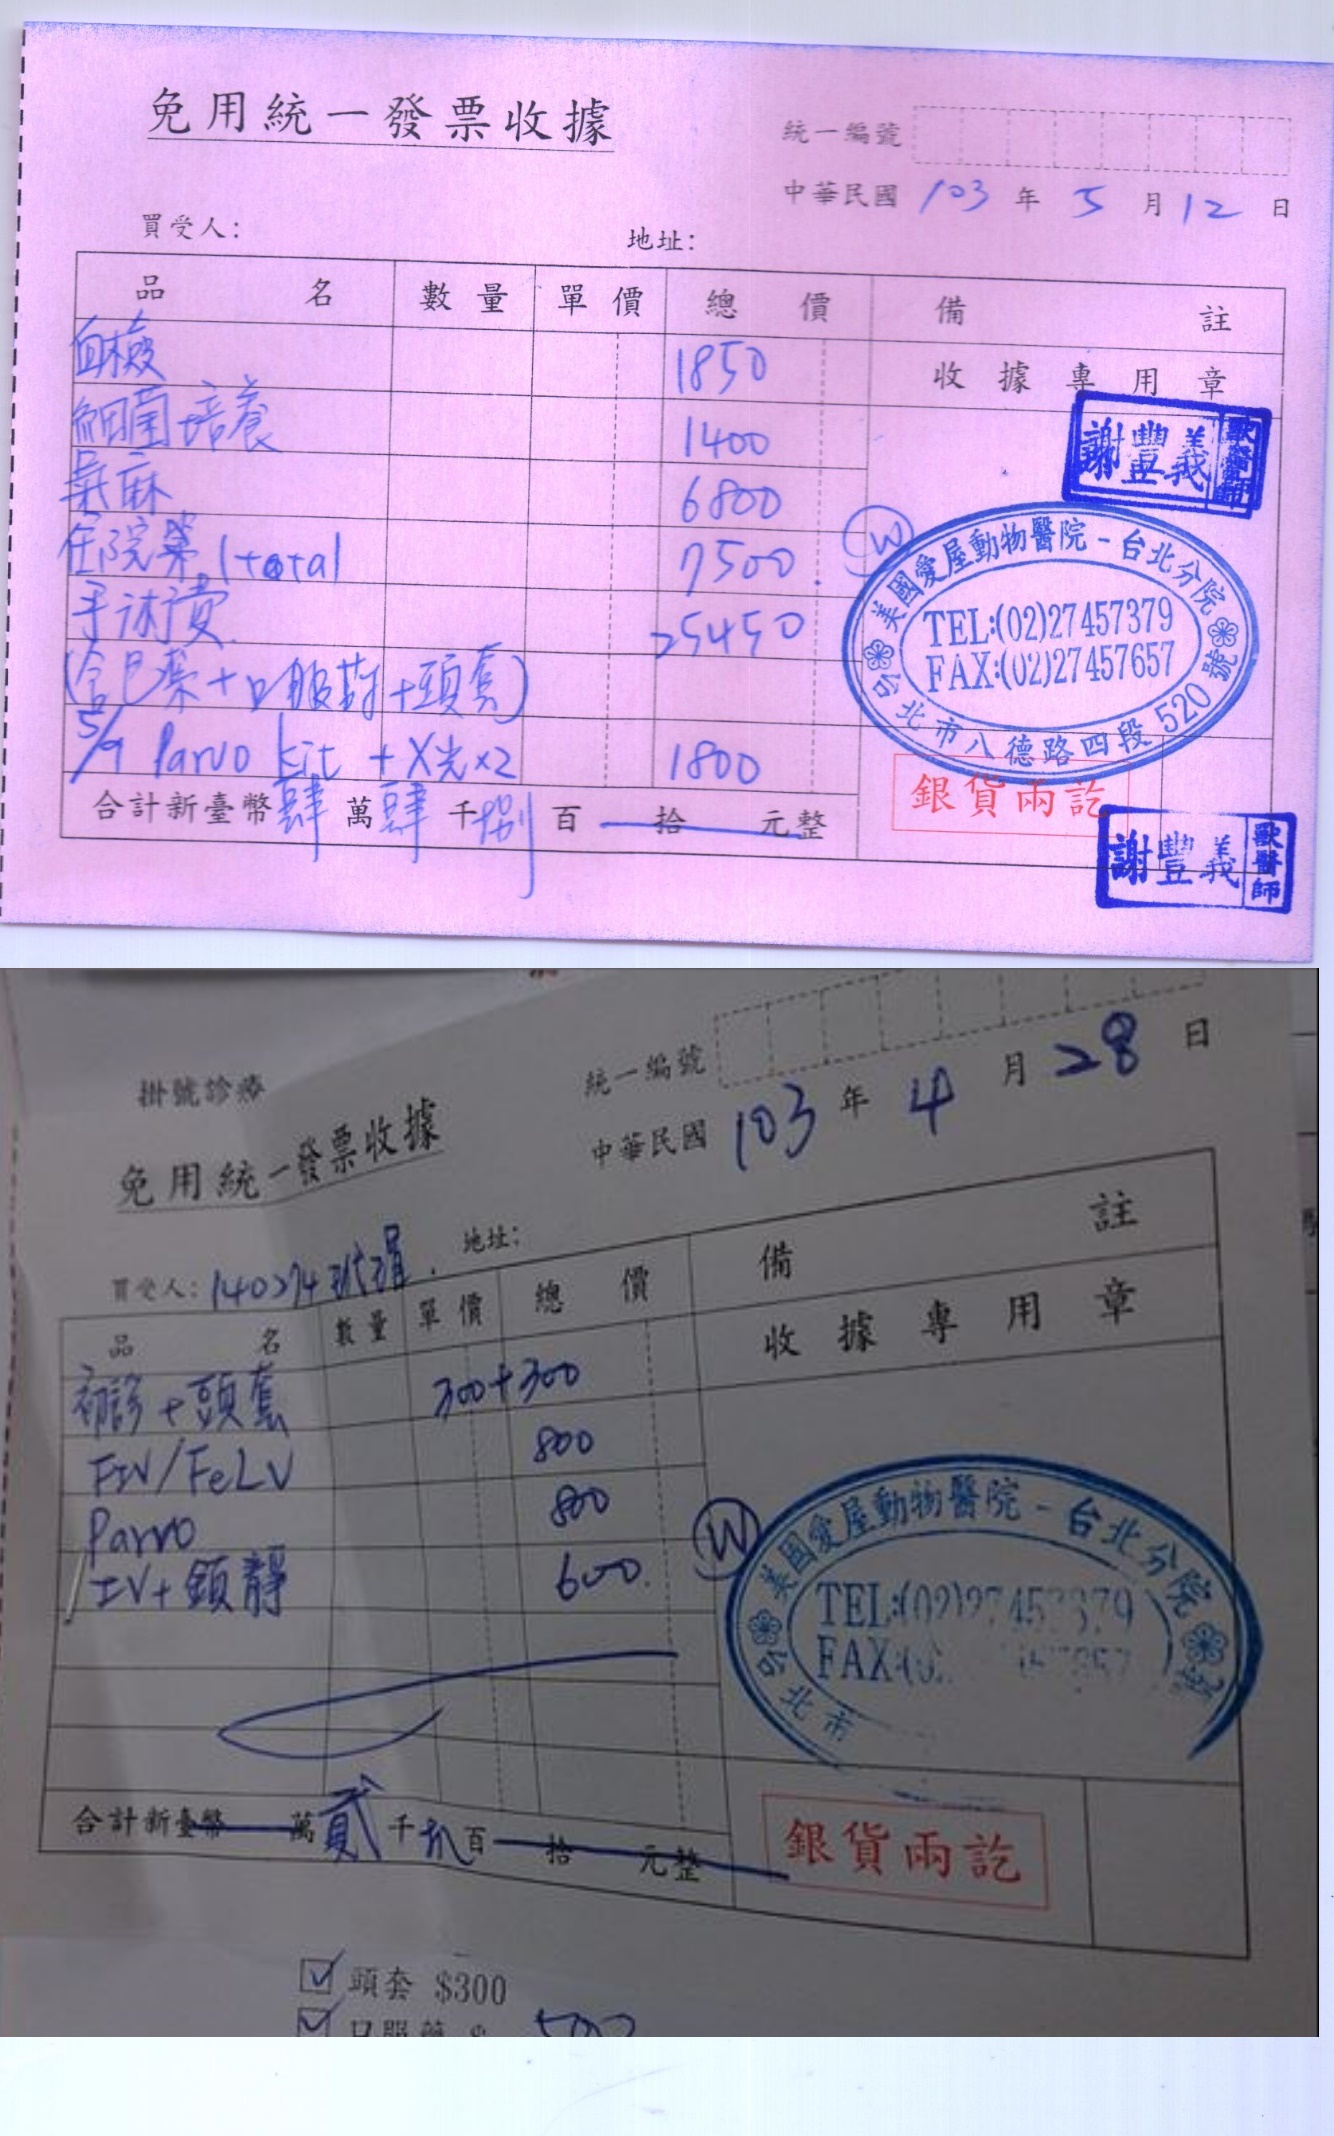 免用統一發票收據
統一編號
中華民國 103 年 5 月 12 日
買受人：
地址：
品名 數量 單價 總價 備註
收據專用章
血檢 1850
細菌培養 1400
氣麻 6800
住院 total 7500
手術費 25450
(含巴藥+口服葯+頭套)
5/9 Parvo kit + X光x2 1800
合計新臺幣 肆 萬 肆 千 捌 百 拾 元整
謝豐義 獸醫師
W
美國愛屋動物醫院-台北分院
TEL:(02)27457379
FAX:(02)27457657
台北市八德路四段520號
銀貨兩訖
謝豐義 獸醫師
掛號診療
免用統一發票收據
統一編號
中華民國 103 年 4 月 28 日
買受人：140274
地址：
品名 數量 單價 總價 備註
收據專用章
初診+頭套 300+300
FIV/FeLV 800
Parvo 800
IV+鎮靜 600
W
美國愛屋動物醫院-台北分院
TEL:(02)27457379
FAX:(0
台北市
號
合計新臺幣 萬 貳 千 捌 百 拾 元整
銀貨兩訖
頭套 $300
口服藥 $ 500